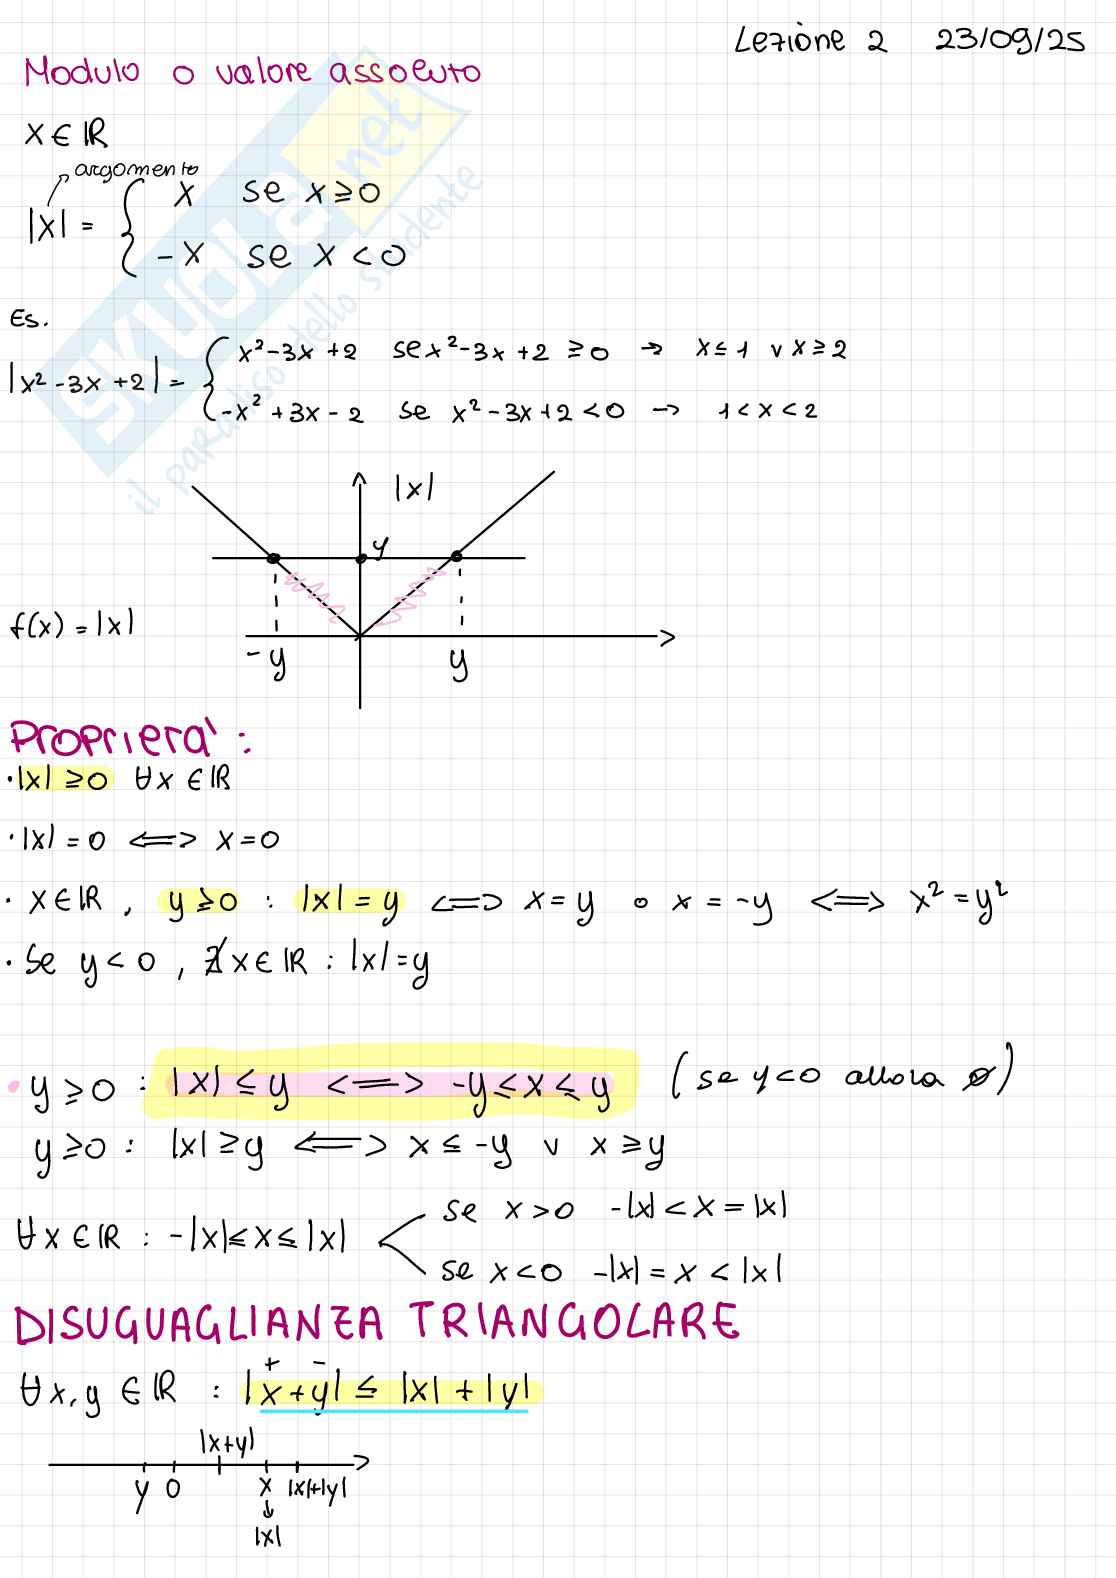 Lezione 2 23/09/25
Modulo o valore assoluto
x ∈ ℝ
argomento
|x| = { x se x ≥ 0
-x se x < 0
Es.
|x² - 3x + 2| = { x² - 3x + 2 se x² - 3x + 2 ≥ 0 → x ≤ 1 ∨ x ≥ 2
-x² + 3x - 2 se x² - 3x + 2 < 0 → 1 < x < 2
|x|
y
f(x) = |x|
-y y
Proprietà:
· |x| ≥ 0 ∀x ∈ ℝ
· |x| = 0 <=> x = 0
· x ∈ ℝ, y ≥ 0 : |x| = y <=> x = y o x = -y <=> x² = y²
· Se y < 0, ∄ x ∈ ℝ : |x| = y
· y ≥ 0 : |x| ≤ y <=> -y ≤ x ≤ y (se y < 0 allora ∅)
y ≥ 0 : |x| ≥ y <=> x ≤ -y ∨ x ≥ y
se x > 0 -|x| < x = |x|
∀x ∈ ℝ : -|x| ≤ x ≤ |x|
se x < 0 -|x| = x < |x|
DISUGUAGLIANZA TRIANGOLARE
+ -
∀x, y ∈ ℝ : |x + y| ≤ |x| + |y|
|x+y|
y 0 x |x|+|y|
↓
|x|
SKUOLA.net
il paradiso dello studente